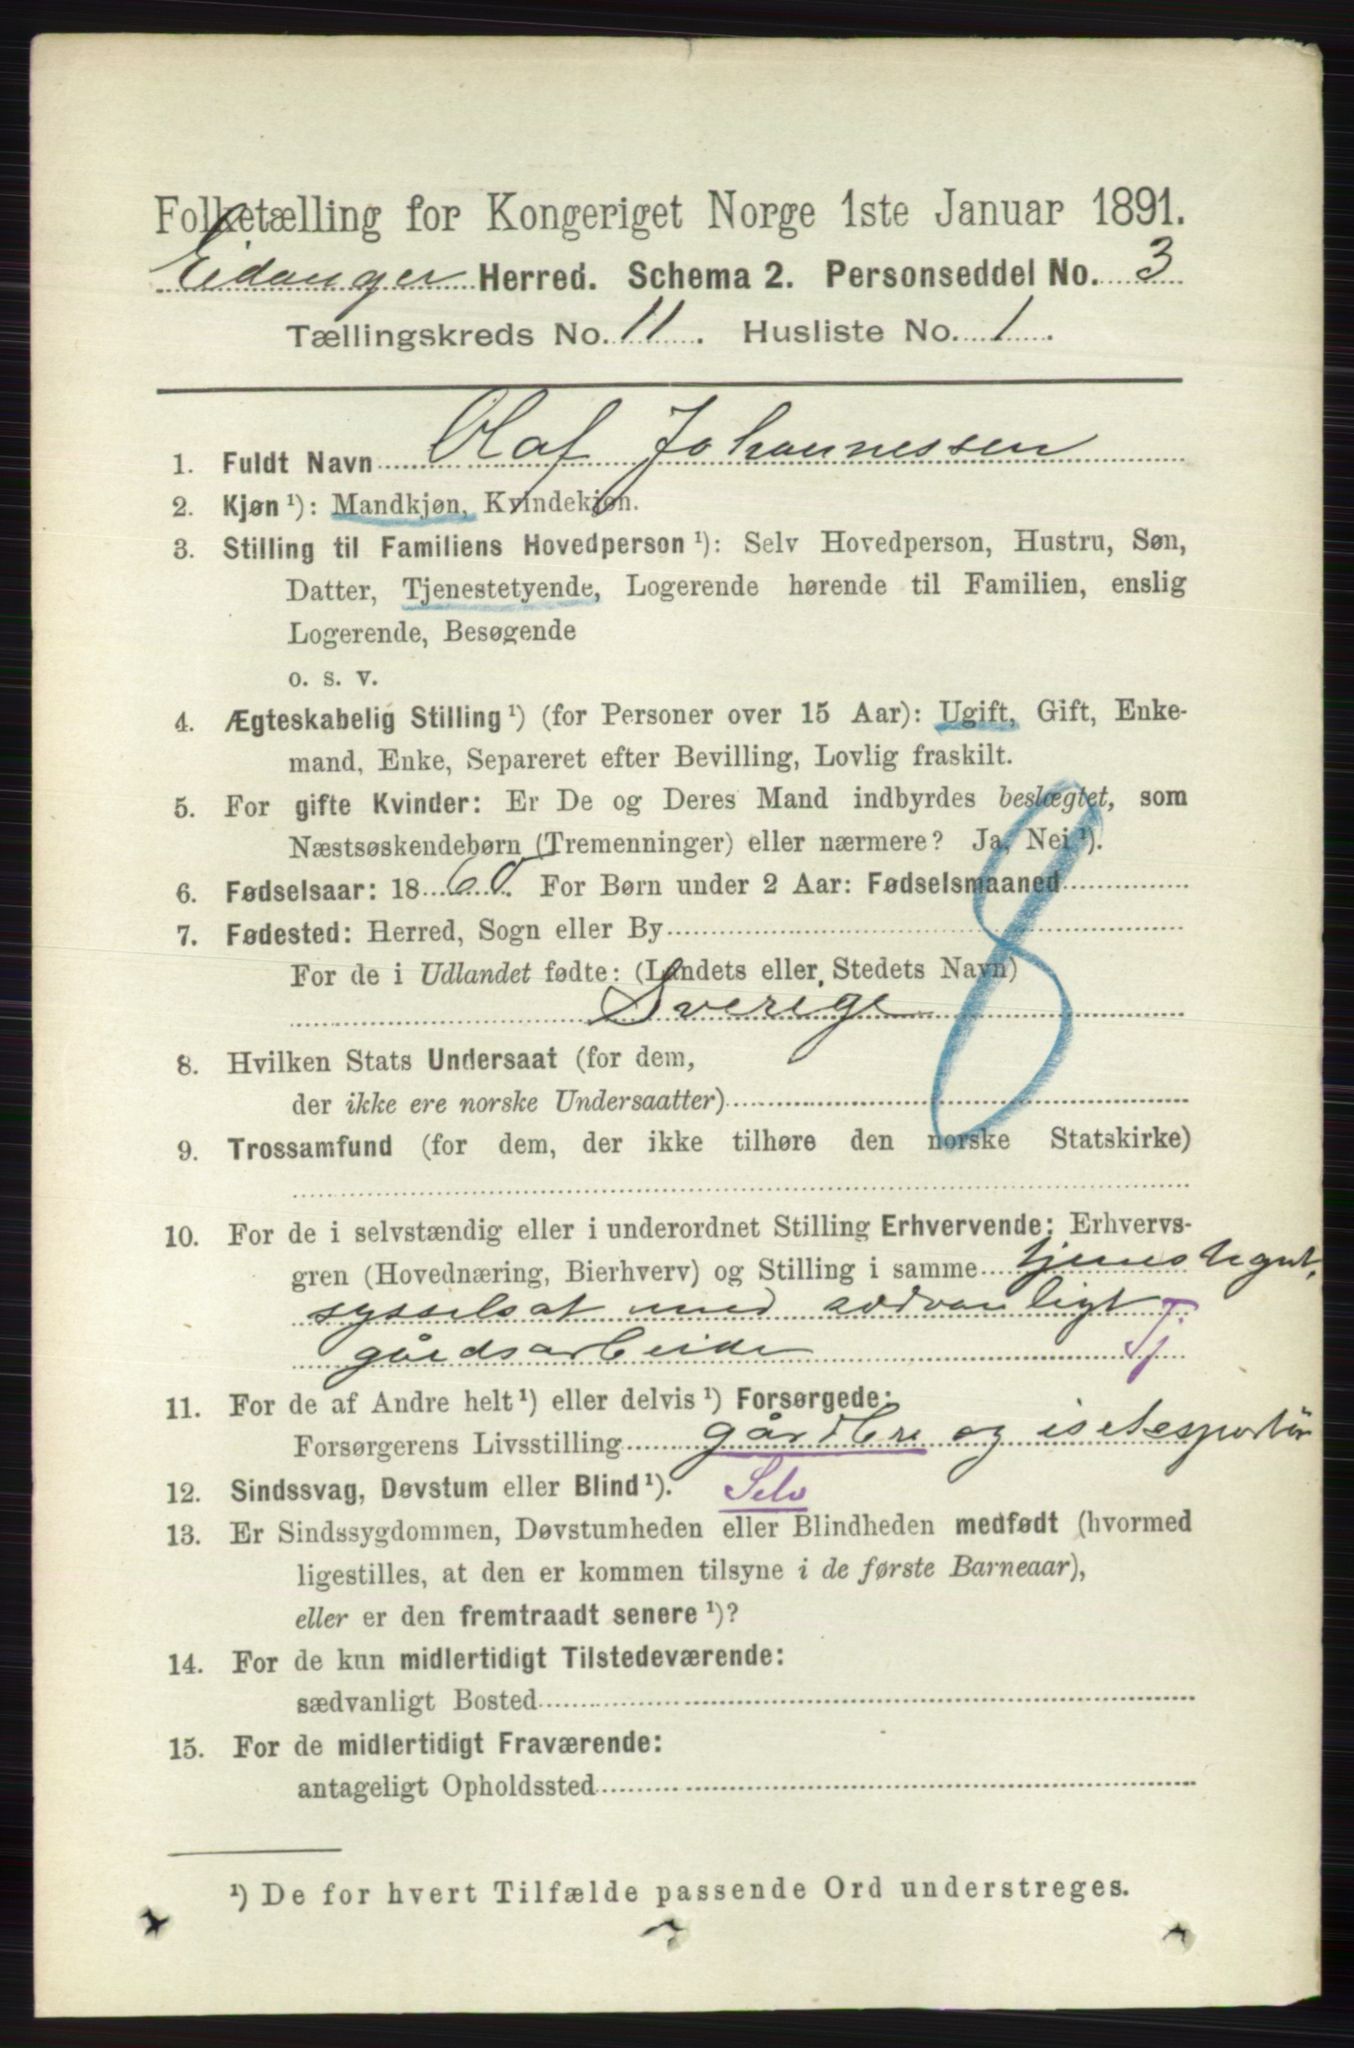 Folketælling for Kongeriget Norge 1ste Januar 1891.
Eidanger Herred. Schema 2. Personseddel No. 3
Tællingskreds No. 11. Husliste No. 1.
1. Fuldt Navn Olaf Johannessen
2. Kjøn ¹): Mandkjøn, Kvindekjøn.
3. Stilling til Familiens Hovedperson ¹): Selv Hovedperson, Hustru, Søn,
Datter, Tjenestetyende, Logerende hørende til Familien, enslig
Logerende, Besøgende
o. s. v.
4. Ægteskabelig Stilling ¹) (for Personer over 15 Aar): Ugift, Gift, Enke-
mand, Enke, Separeret efter Bevilling, Lovlig fraskilt.
5. For gifte Kvinder: Er De og Deres Mand indbyrdes beslægtet, som
Næstsøskendebørn (Tremenninger) eller nærmere? Ja, Nei ¹).
6. Fødselsaar: 1860. For Børn under 2 Aar: Fødselsmaaned
7. Fødested: Herred, Sogn eller By
For de i Udlandet fødte: (Landets eller Stedets Navn)
Sverige
8
8. Hvilken Stats Undersaat (for dem,
der ikke ere norske Undersaatter)
9. Trossamfund (for dem, der ikke tilhøre den norske Statskirke)
10. For de i selvstændig eller i underordnet Stilling Erhvervende: Erhvervs-
gren (Hovednæring, Bierhverv) og Stilling i samme tjenestegut,
sysselsat med sædvanligt
gårdsarbeide Tj
11. For de af Andre helt ¹) eller delvis ¹) Forsørgede:
Forsørgerens Livsstilling gårdbr. og iseksportør
12. Sindssvag, Døvstum eller Blind ¹). Selv
13. Er Sindssygdommen, Døvstumheden eller Blindheden medfødt (hvormed
ligestilles, at den er kommen tilsyne i de første Barneaar),
eller er den fremtraadt senere ¹)?
14. For de kun midlertidigt Tilstedeværende:
sædvanligt Bosted
15. For de midlertidigt Fraværende:
antageligt Opholdssted
¹) De for hvert Tilfælde passende Ord understreges.